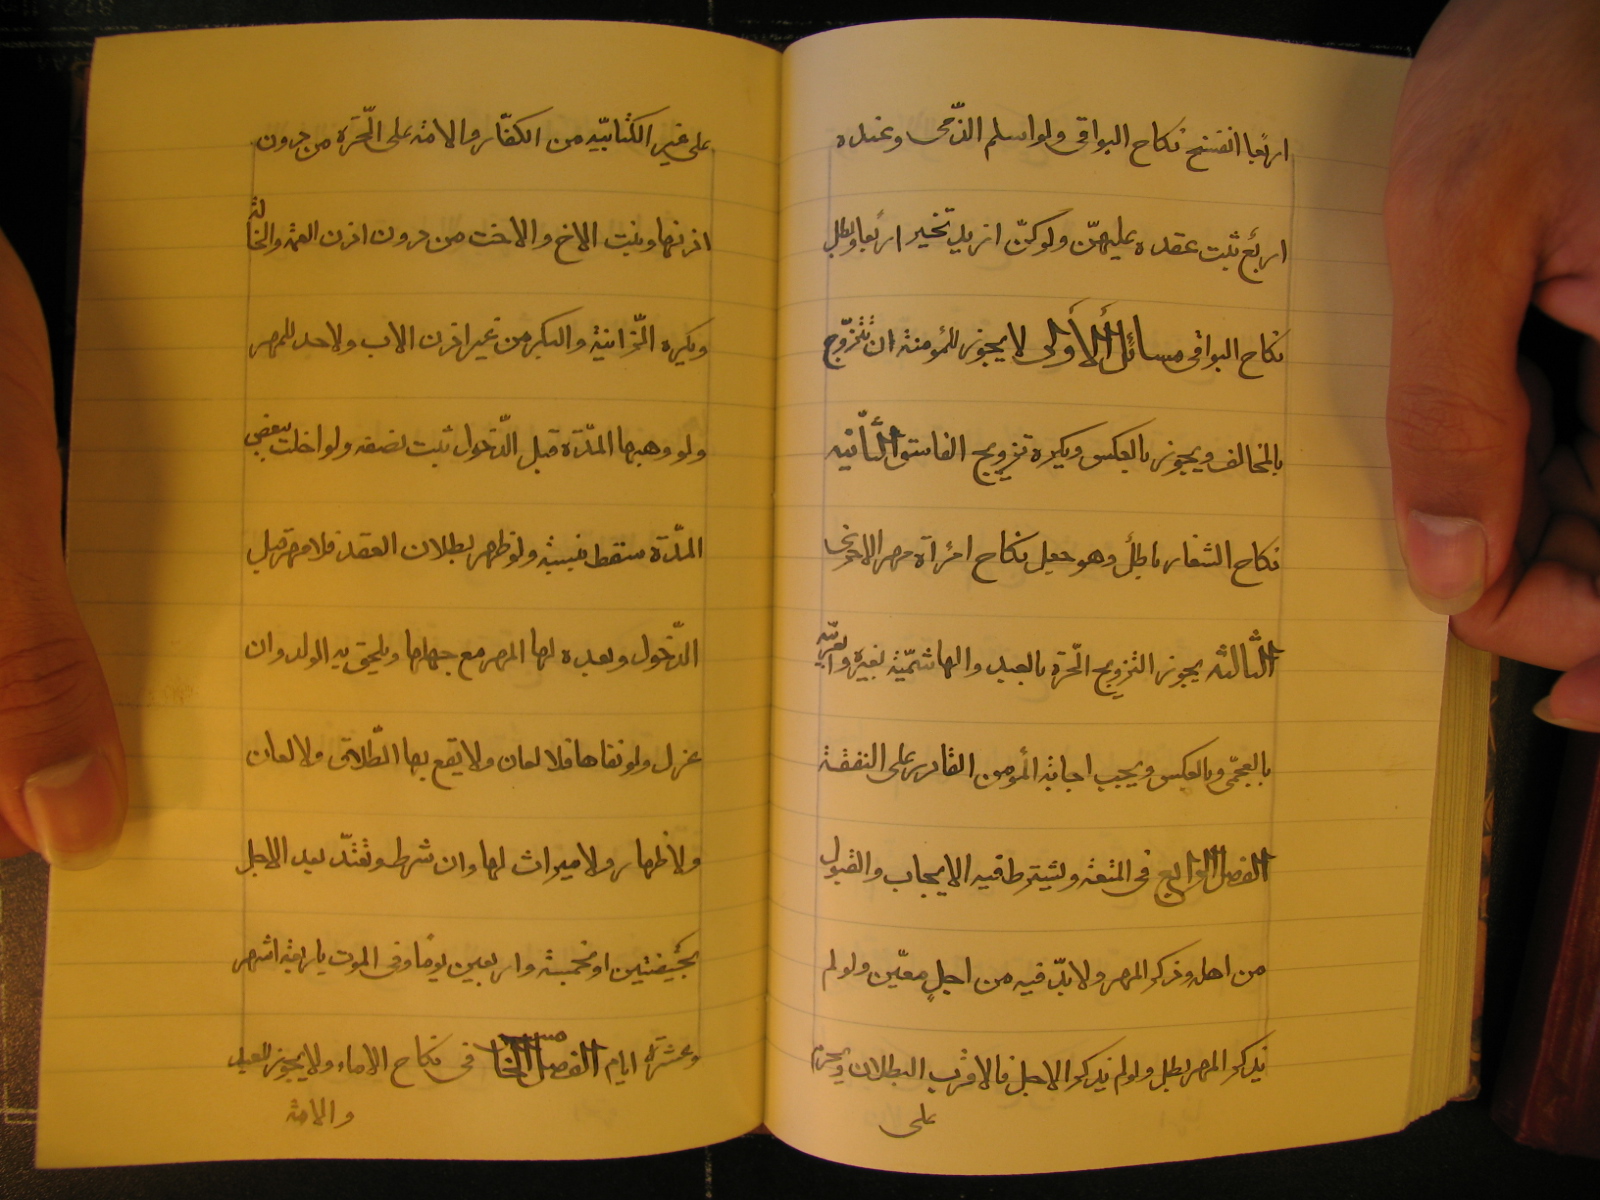 اربعا انفسخ نكاح البواقى ولو اسلم الذّمى وعنده
اربع ثبت عقده عليهنّ ولو كنّ ازيد تخير اربعا وبطل
نكاح البواقى مسائل الأولى لا يجوز للمؤمنة ان تتزوّج
بالمخالف ويجوز بالعكس ويكره تزويج الفاسق الثّانيه
نكاح الشغار باطل وهو جعل نكاح امرأة مهر الاخرى
الثالثه يجوز التزويج الحّرة بالعبد والهاشميّة بغيره والعربيّه
بالعجمّى وبالعكس ويجب اجابة المؤمن القادر على النفقة
الفصل الرابع فى المتعة ويشترط فيه الايجاب والقبول
من اهله وذكر المهر ولابدّ فيه من اجلٍ معيّن ولو لم
يذكر المهر بطل ولو لم يذكر الاجل فالاقرب البطلان ويحرم
على
على غير الكتابيّه من الكفّار والامة على الحّرة من دون
اذنها وبنت الاخ والاخت من دون اذن العمة والخالة
ويكره الزّانية والبكر من غير اذن الاب ولا حد للمهر
ولو وهبها المدّة قبل الدّخول ثبت نصفه ولو اخلت ببعض
المدّة سقط بنسبته ولو ظهر بطلان العقد فلا مهر قبل
الدّخول وبعده لها المهر مع جهلها ويلحق به الولد وان
عزل ولو نفاها فلا لعان ولا يقع بها الطّلاق ولا لعان
ولا ظهار ولا ميراث لها وان شرط وتعتدّ بعد الاجل
بحيضتين او بخمسة واربعين يوما وفى الموت باربعة اشهر
وعشرة ايام الفصل الخامس فى نكاح الاماء ولا يجوز للعبد
والامة